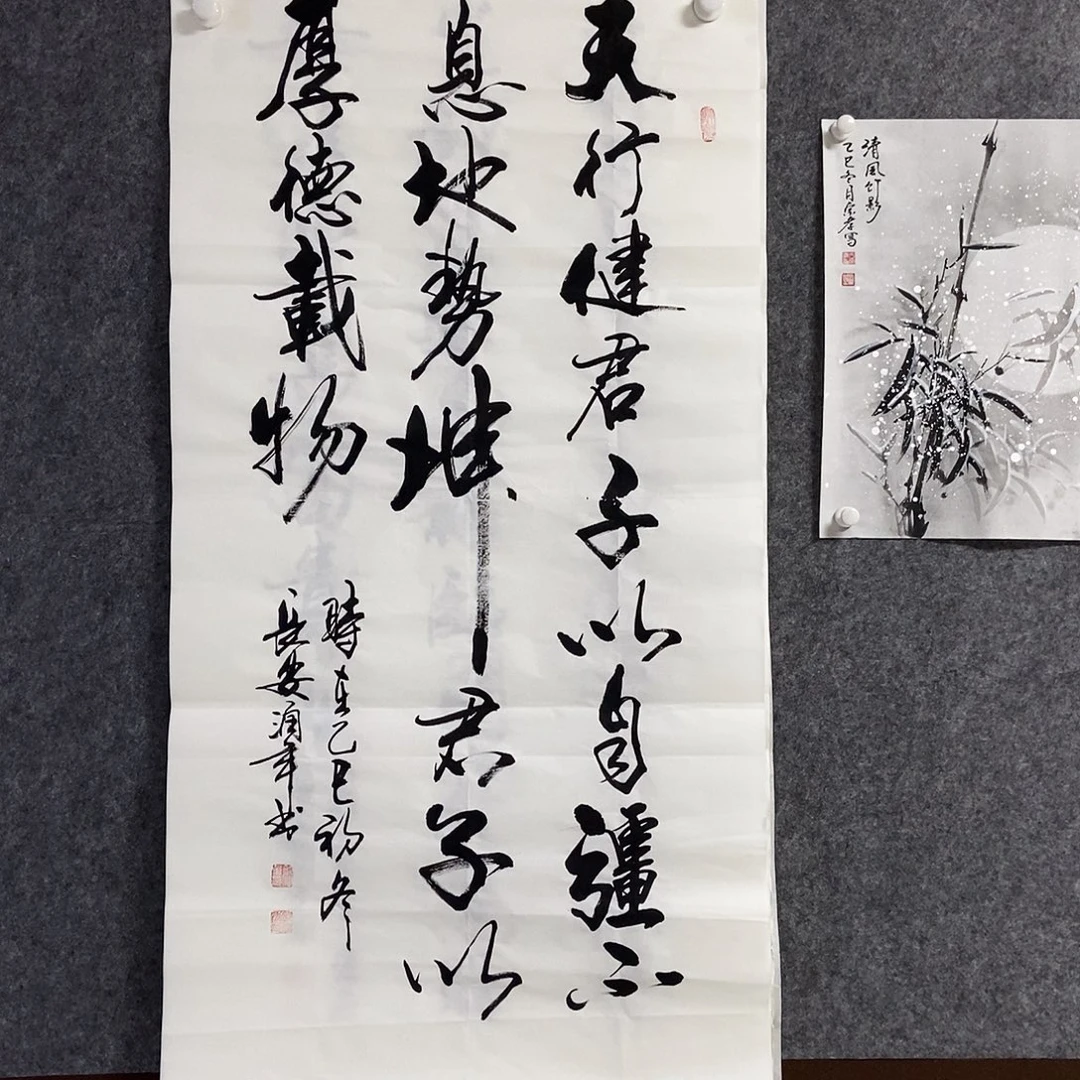 天行健君子以自疆不
息地势坤君子以
厚德載物
時在乙巳初冬
長安润年书
清風竹影
乙巳冬月